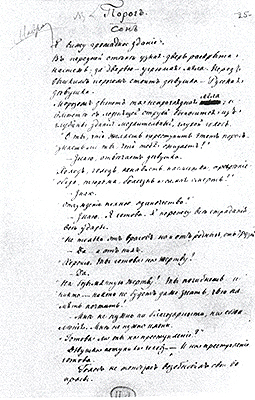 № 2. Порогъ. 25.
Сонъ
Я вижу громадное зданіе.
Въ передней стѣнѣ узкая дверь раскрыта
настежь; за дверью — угрюмая мгла. Передъ
высокимъ порогомъ стоитъ дѣвушка — Русская
дѣвушка.
Морозомъ дышетъ та непроглядная мгла
и вмѣстѣ съ леденящей струей выносится изъ
глубины зданія медлительный, глухой голосъ.
"О ты, что желаешь переступить этотъ порогъ,
знаешь ли ты, что тебя ожидаетъ?"
— Знаю, отвѣчаетъ дѣвушка.
"Холодъ, голодъ, ненависть, насмѣшка, презрѣніе,
обида, тюрьма, болѣзнь и самая смерть?"
— Знаю.
"Отчужденіе полное, одиночество?"
— Знаю. Я готова. Я перенесу всѣ страданія,
всѣ удары.
"Не только отъ враговъ, но и отъ родныхъ, отъ друзей?"
— Да.. и отъ нихъ.
"Хорошо. Ты готова на жертву?"
— Да.
"На безымянную жертву? Ты погибнешь — и
никто — никто не будетъ даже знать, чью па-
мять почтить!"
Мнѣ не нужно ни благодарности, ни сожа-
лѣнія. Мнѣ не нужно имени.
"Готова ли ты на преступленіе?"
Дѣвушка потупила голову — И на преступленіе
готова.
Голосъ не тотчасъ возобновилъ свои во-
просы.